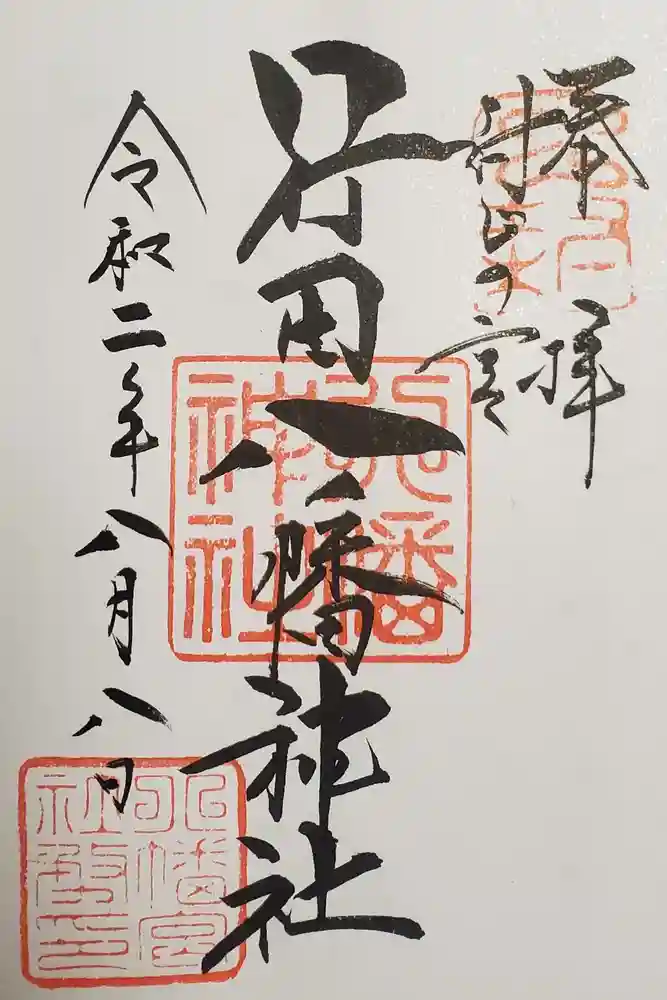 奉拝
封じの宮
行田八幡神社
八幡
神社
令和二年八月八日
八幡宮
社務印